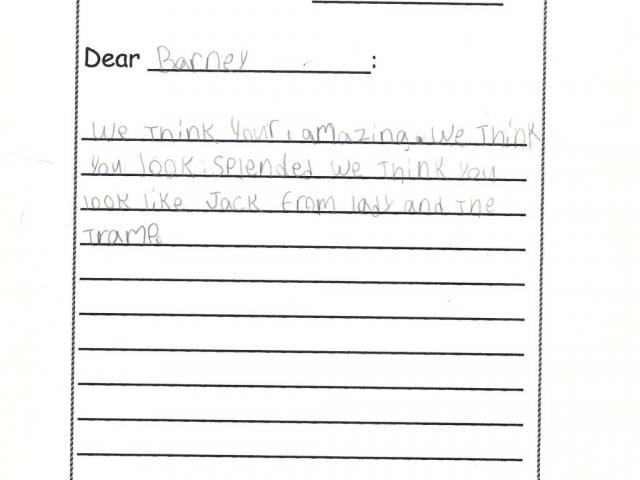 Dear Barney :
We Think Your amazing. We Think
You look splended we Think you
look like Jack from lady and The
Tramp.